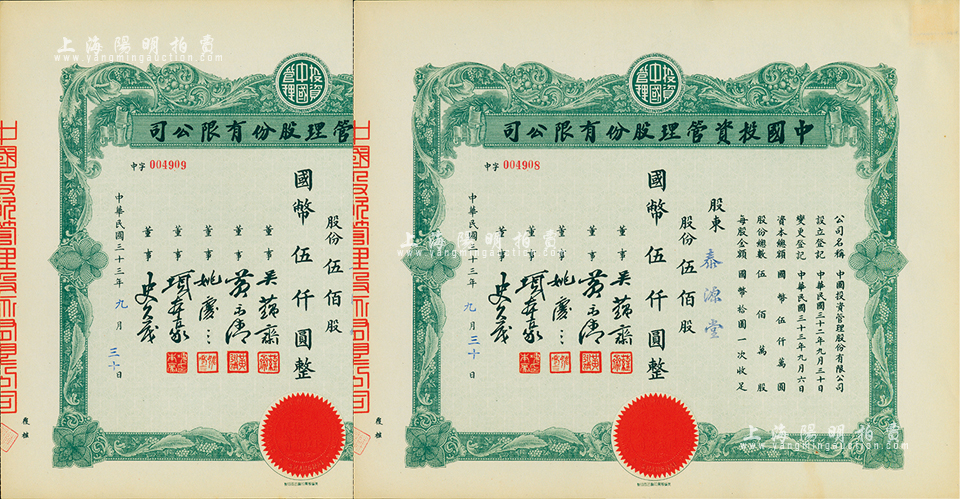 上海陽明拍賣
www.yangmingauction.com
管理股份有限公司
中字 004909
國幣伍仟圓整
股份伍佰股
董事
董事
董事
董事
董事
中華民國三十三年九月三十日
投資中國管理
中國投資管理股份有限公司
中字 004908
公司名稱 中國投資管理股份有限公司
設立登記 中華民國三十二年九月三十日
變更登記 中華民國三十三年九月六日
資本總額 國幣伍仟萬圓
股份總數 伍佰萬股
每股金額 國幣拾圓一次收足
股東 泰源堂
股份伍佰股
國幣伍仟圓整
董事 吳蘊齋
董事
董事 姚慶
董事
董事 史久茂
中華民國三十三年九月三十日
復核
復核
上海陽明拍賣
www.yangmingauction.com
上海陽明拍賣
www.yangmingauction.com